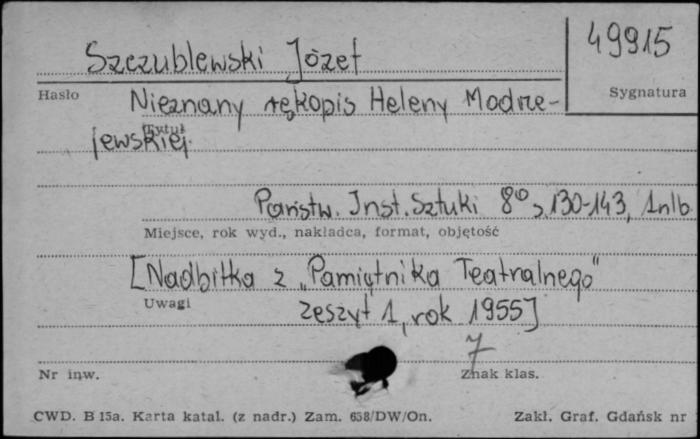 49915
Szczublewski Józef
Hasło
Sygnatura
Nieznany rękopis Heleny Modrze-
Tytuł
jewskiej
Państw. Inst. Sztuki 8° s. 130-143, 1nlb.
Miejsce, rok wyd., nakładca, format, objętość
[Nadbitka z „Pamiętnika Teatralnego"
Uwagi
zeszyt 1, rok 1955]
7
Nr inw.
Znak klas.
CWD. B 15a. Karta katal. (z nadr.) Zam. 658/DW/On.
Zakł. Graf. Gdańsk nr